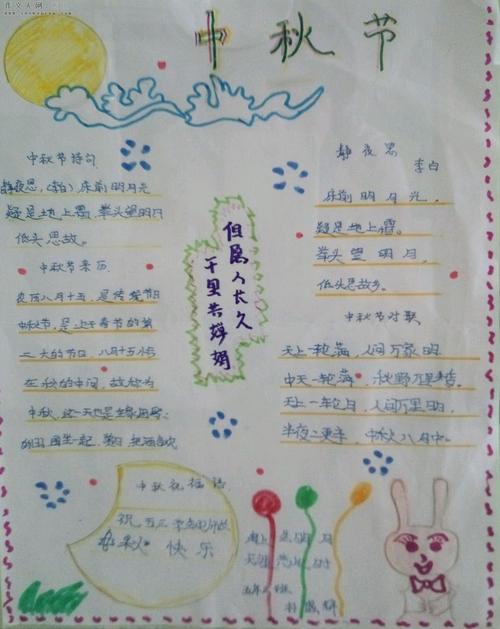 作文大网
中秋节
中秋节诗句
静夜思,(李白)床前明月光
疑是地上霜,举头望明月
低头思故。
中秋节来历
农历八月十五,是传统节日
中秋节,是上于春节的第
二大的节日
八月十五恰
在秋的中间,故称为
中秋,这一天也是
但愿人长久
千里共婵娟
静夜思
李白
床前明月光,
疑是地上霜。
举头望明月,
低头思故乡。
中秋节对联
天上一轮满,人间万家明
中天一轮满,秋野万里香。
天上一轮月,人间万里明。
半夜二更半,中秋八月中。
中秋祝福语
祝五三
中秋快乐
海上
天涯
五年